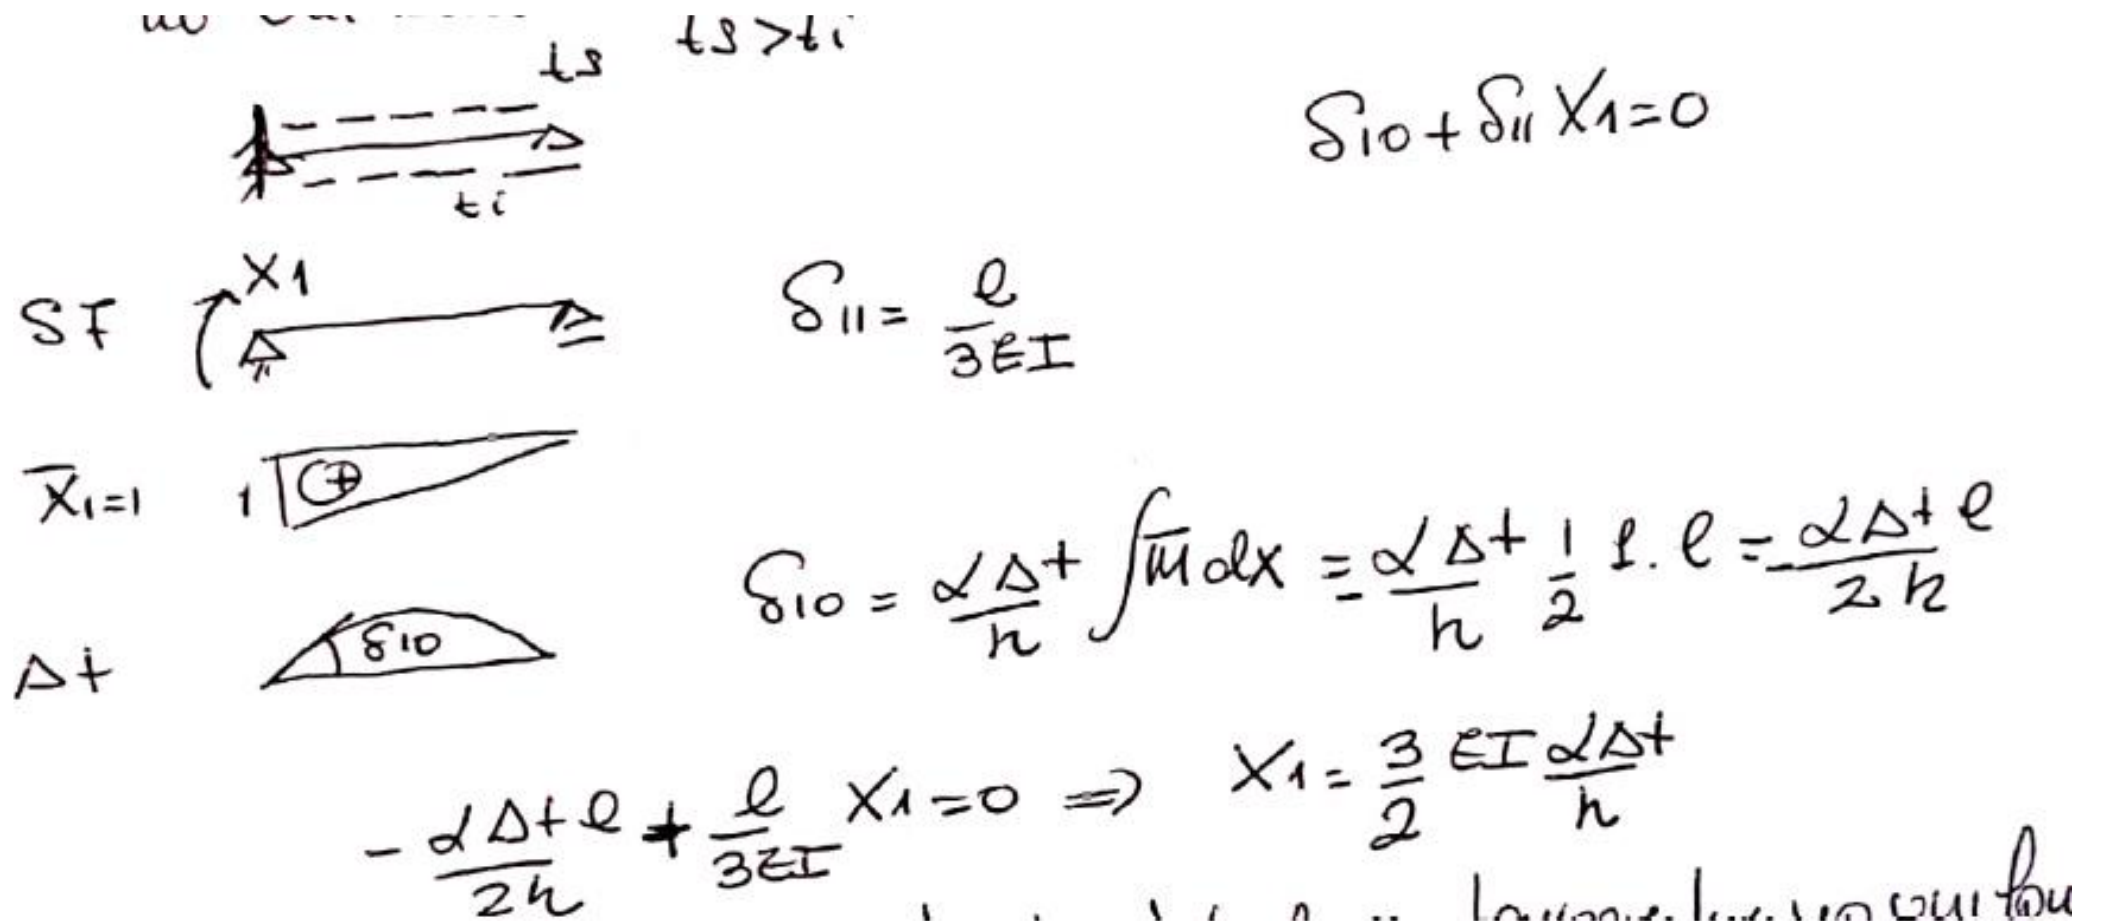 ts ts>ti
ti
δ10 + δ11 X1 = 0
SF X1 δ11 = l/3EI
X̄1=1 1 ⊕
δ10 = αΔt/h ∫m̄dx = - αΔt/h 1/2 1. l = - αΔt l/2h
Δt δ10
- αΔt l/2h + l/3EI X1 = 0 ⇒ X1 = 3/2 EI αΔt/h